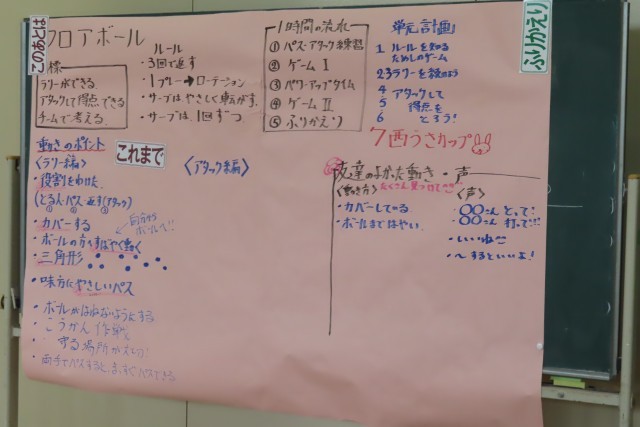 このあとは
フロアボール
目標
ラリーができる。
アタックして得点できる
チームで考える。
ルール
・3回で返す
・1プレー→ローテーション
・サーブはやさしく転がす。
・サーブは、1回ずつ
1時間の流れ
① パス・アタック練習
② ゲームⅠ
③ パワーアップタイム
④ ゲームⅡ
⑤ ふりかえり
単元計画
1 ルールを知る
ためしのゲーム
2,3 ラリーを
4 アタックして
5 得点を
6 とろう!
7 西うさカップ
ふりかえり
動きのポイント
これまで
〈ラリー編〉
・役割をわけた
(とる人・パス・返す(アタック)
① ② ③
・カバーする
自分から
ボールへ!!
・ボールの方へすばやく動く
・三角形
・味方にやさしいパス
・ボールがはねないようにする
・こうかん作戦
・守る場所
・両手でパスすると、まっすぐパスできる
〈アタック編〉
友達のよかった動き・声
〈動き方〉
たくさん見つけてね!!
・カバーしている
・ボールまではやい。
〈声〉
・〇〇さんとって!
〇〇さん打って!!!
・いいね
・〜するといいよ!